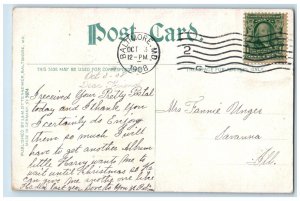 Post Card.
BALTIMORE, MD.
OCT 3
12-PM
1908
2
THIS SIDE MAY BE USED FOR
Oct 3-08
Dear
I received Your Pretty Postal
today and I thank You
I certainly do Enjoy
them so much I will
have to get another Album
little Harry want me to
wait until Christmas so he
can give me another one like
last year love to
Mrs Fannie Unger
Savanna
Ill.